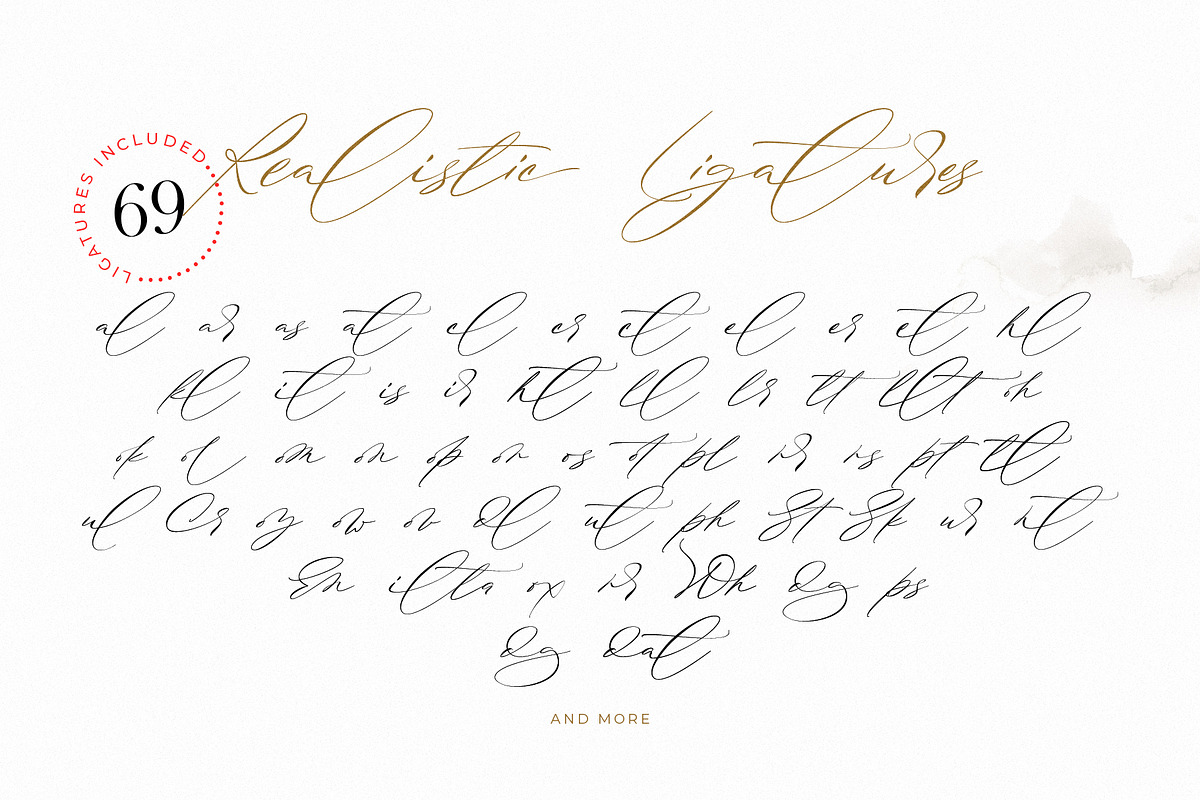 LIGATURES INCLUDED
69
Realistic Ligatures
al ar as at cl cr ct el er et hl
kl it is ir ht ll lr tt llt oh
ok ol om on op or os ot pl rr rs pt tl
ul Cr oy ow ov dl ut ph St Sk ur nt
En ilta ox ir Wh dg ps
dg dat
AND MORE